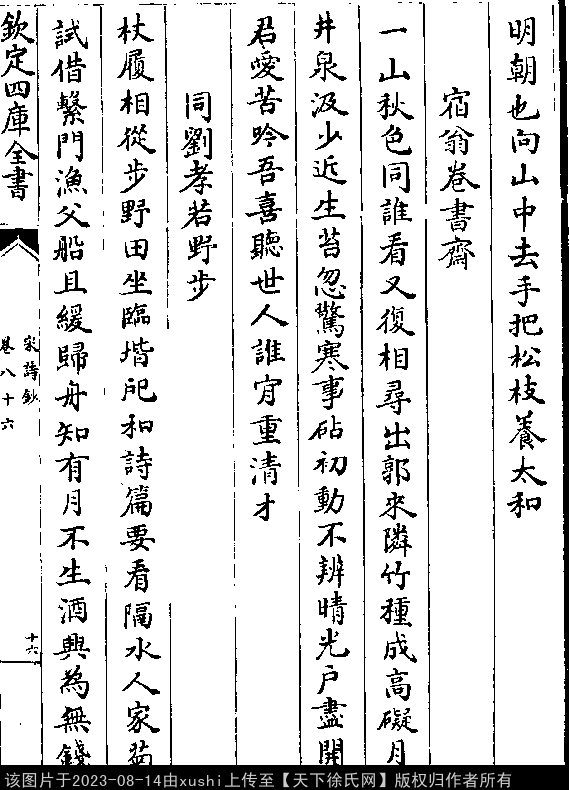 明朝也向山中去手把松枝養太和
宿翁卷書齋
一山秋色同誰看又復相尋出郭来隣竹種成高礙月
井泉汲少近生苔忽驚寒事砧初動不辨晴光戶盡開
君愛苦吟吾喜聽世人誰肯重清才
同劉孝若野步
杖履相從步野田坐臨堦戺和詩篇要看隔水人家菊
試借繫門漁父船且緩歸舟知有月不生酒興為無錢
欽定四庫全書
宋詩鈔
卷八十六
十六
该图片于2023-08-14由xushi上传至【天下徐氏网】版权归作者所有